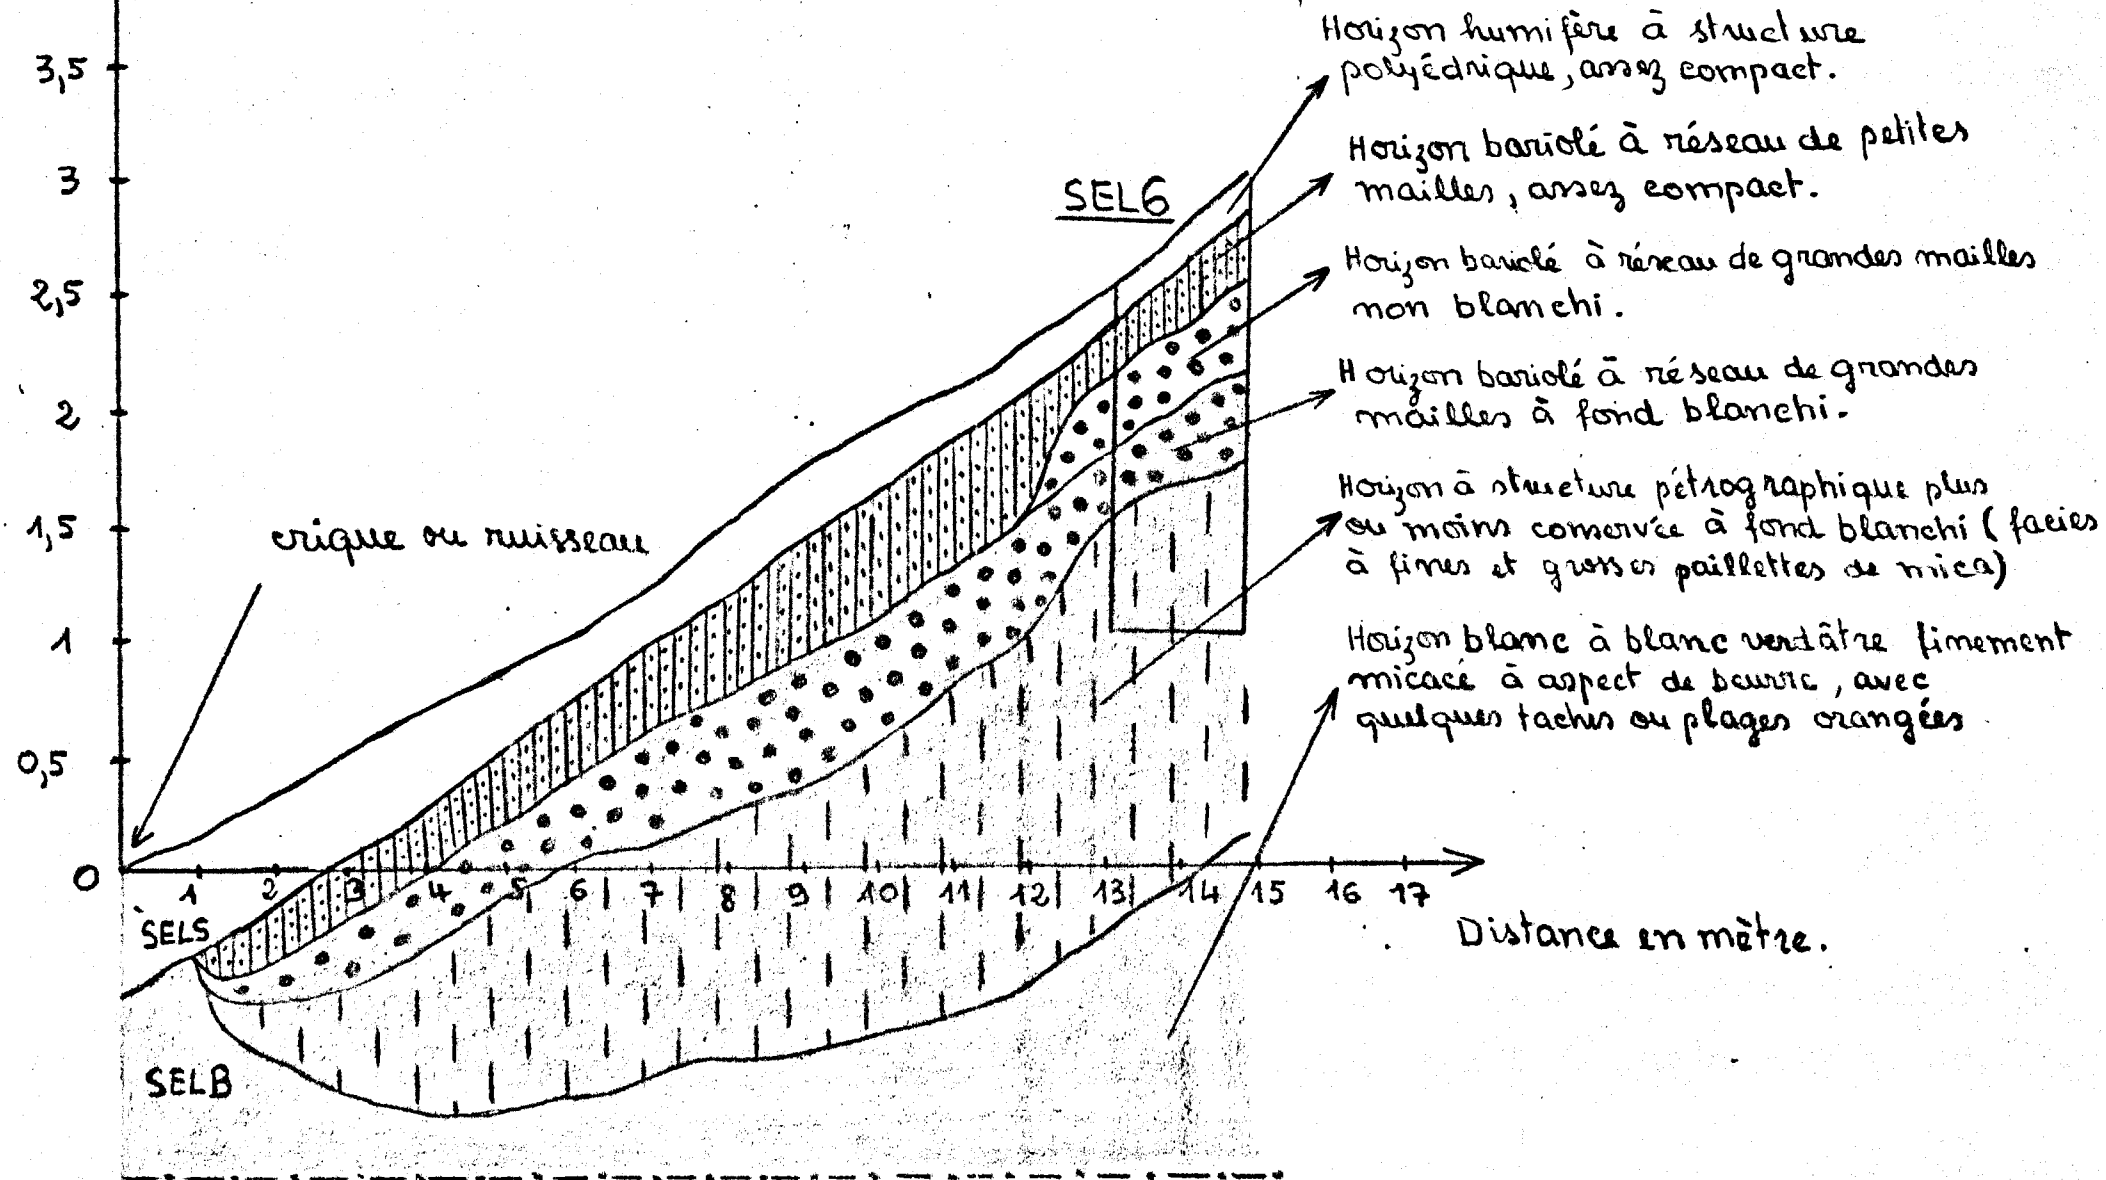 3,5
3
2,5
2
1,5
1
0,5
0
SEL6
crique ou ruisseau
Horizon humifère à structure
polyédrique, assez compact.
Horizon bariolé à réseau de petites
mailles, assez compact.
Horizon bariolé à réseau de grandes mailles
non blanchi.
Horizon bariolé à réseau de grandes
mailles à fond blanchi.
Horizon à structure pétrographique plus
ou moins conservée à fond blanchi (facies
à fines et grosses paillettes de mica)
Horizon blanc à blanc verdâtre finement
micacé à aspect de beurre, avec
quelques taches ou plages orangées
1 2 3 4 5 6 7 8 9 10 11 12 13 14 15 16 17
Distance en mètre.
SELS
SELB